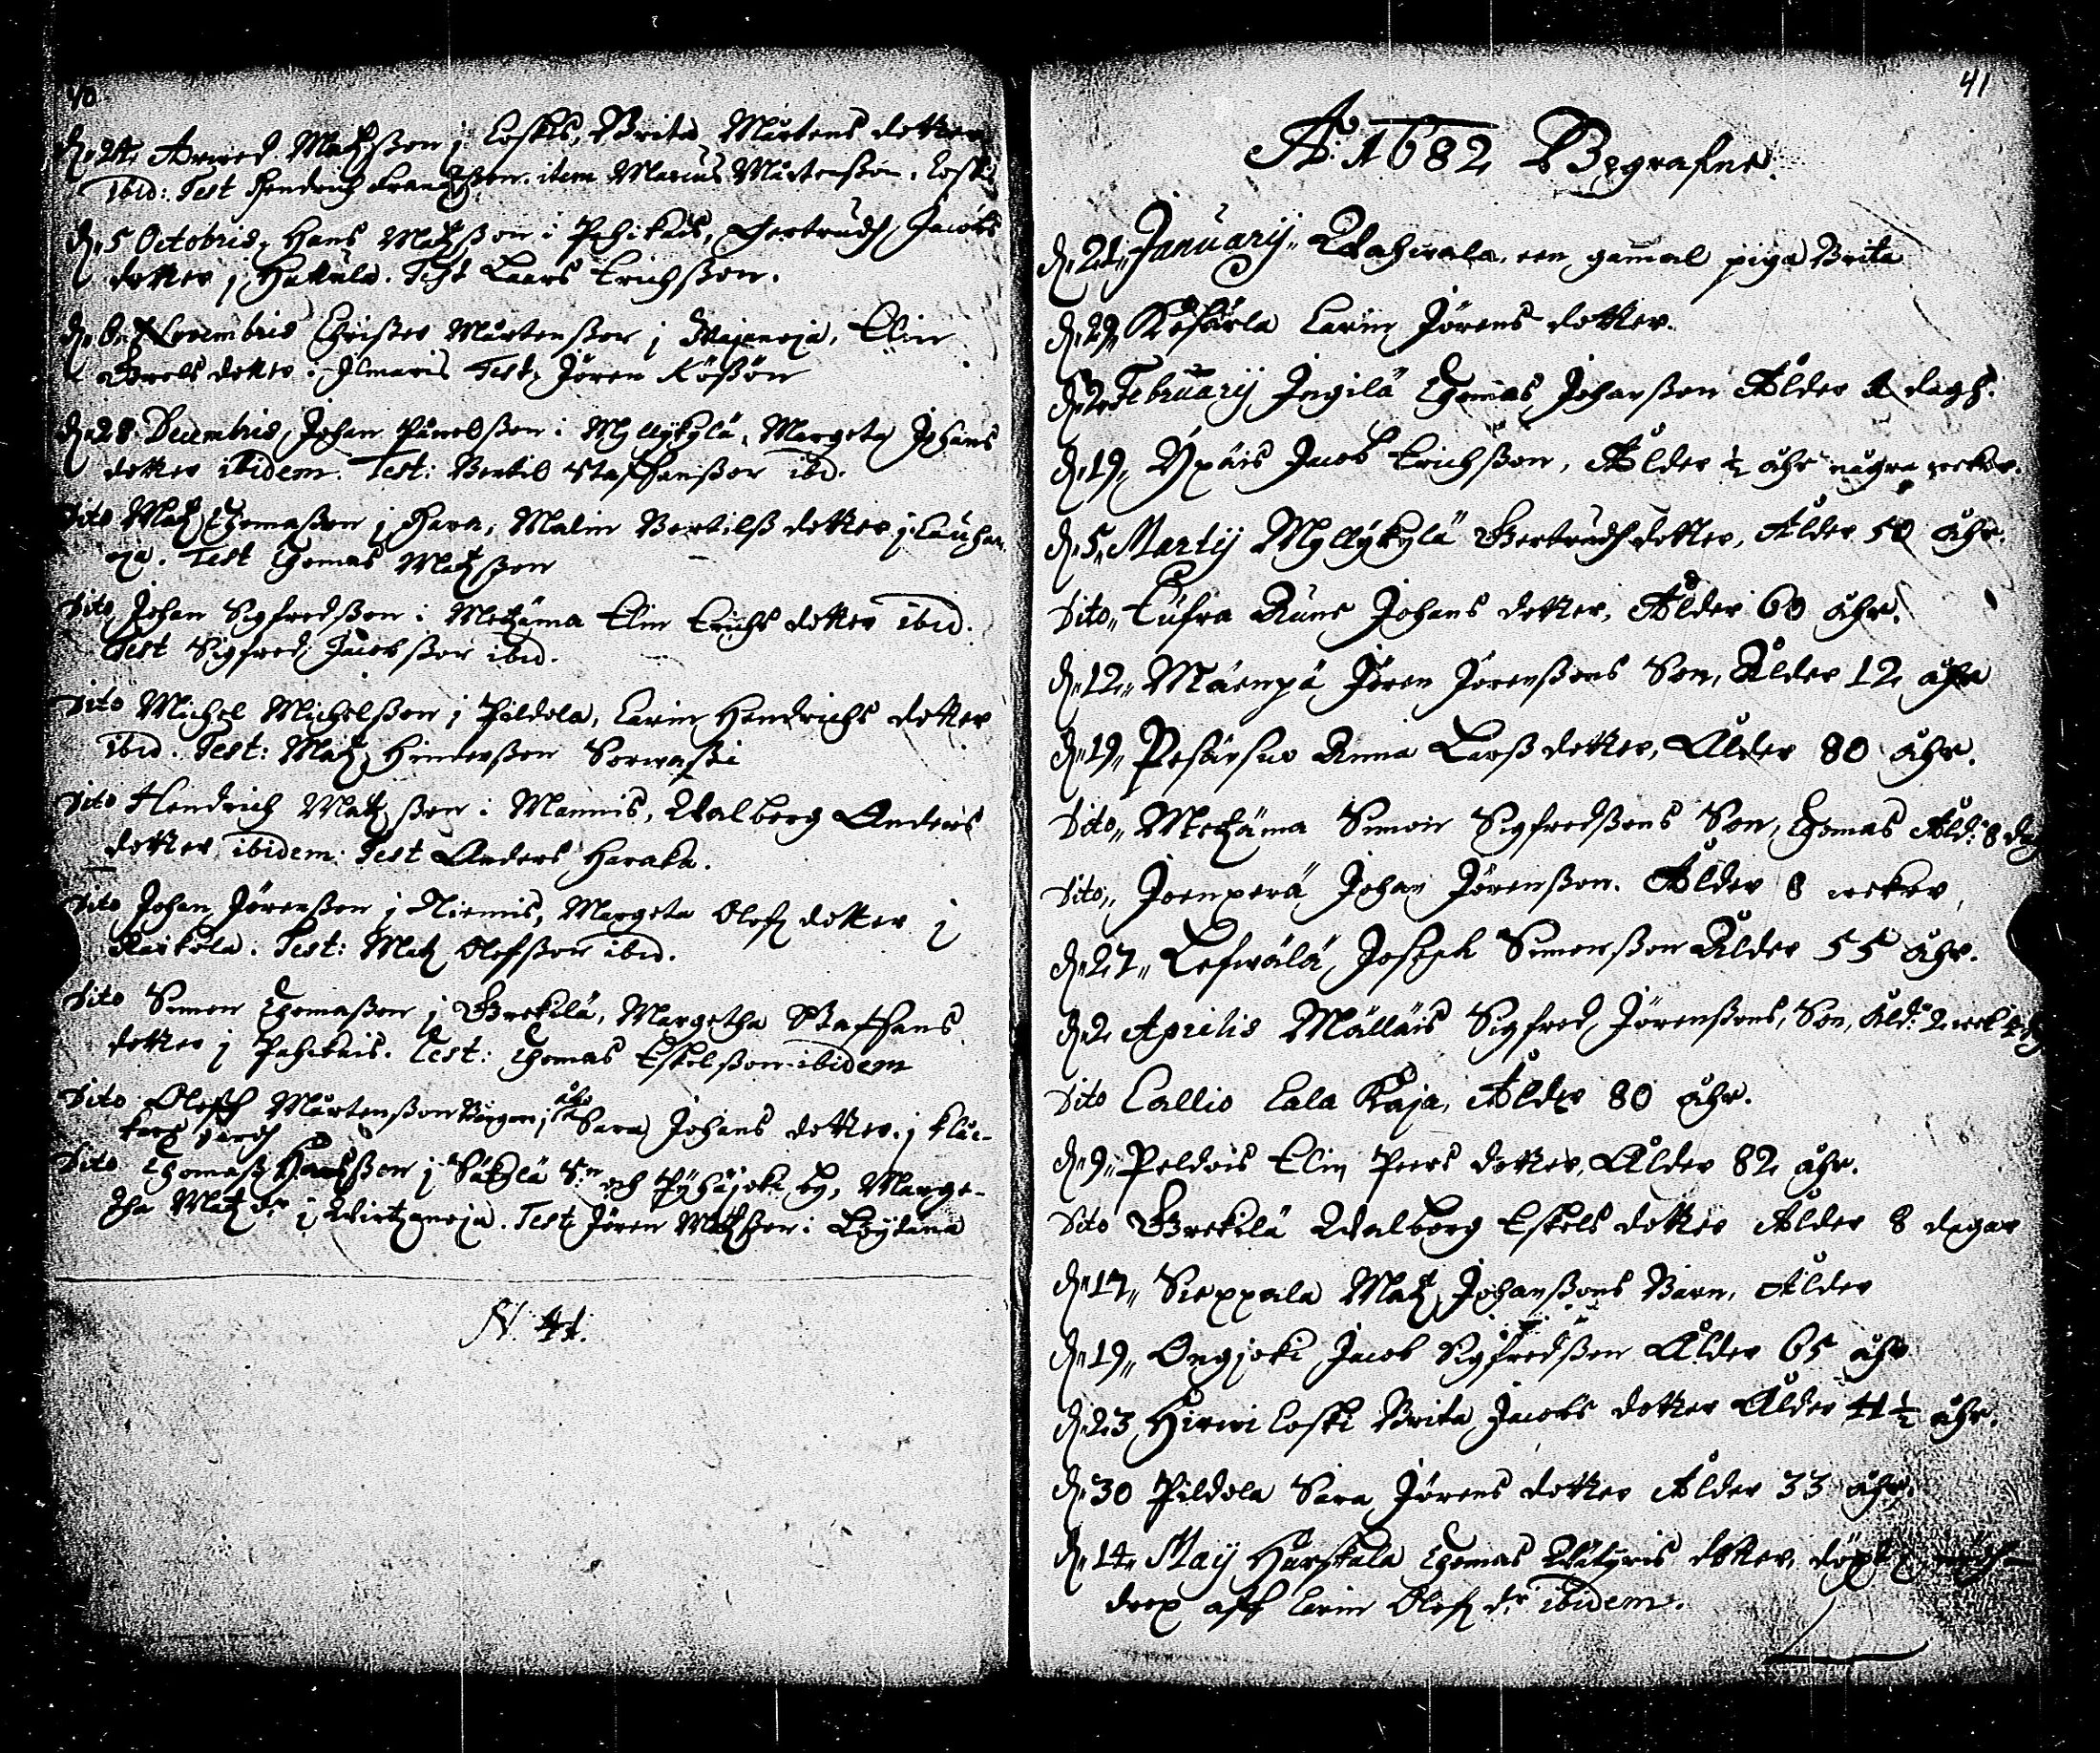 40
d. 24. Arwed Matzßon j Coskis, Brita Mårtens dotter
ibid: Test Hendrich Frantzßon. item Marcus Mårtenßon. Coskis
d. 5 Octobris, Hans Matzßon i Pehikais, Gertrudh Jacobs
dotter j Hakula. Test Laars Erichßon.
d. 6. Novembris Christer Mårtenßon j Majanoja, Elin
Bertels dotter. Ilmaris Test. Jören
d. 28. Decembris, Johan Påuelßon i Myllykylä, Margeta Johans
dotter ibidem. Test: Bertil Staffanßon ibd.
Dito Matz Thomaßon j Hara, Malin Bertilß dotter j Lauhan
oja. Test Thomas Matzßon
Dito, Johan Sigfredßon i Metzäma Elin Erichs dotter ibid.
Test Sigfred Jacobßon ibid.
Dito Michel Michelßon j Pildola, Carin Hendrichs dotter
ibid. Test: Matz Hinderßon Sorwasti
Dito Hendrich Matzßon i Mannis, Walborg Anders
dotter ibidem. Test Anders Haraka.
Dito Johan Jörenßon j Niemis, Margeta Olofz dotter j
Raikola. Test: Matz Olofßon ibid.
Dito Simon Thomaßon j Grekilä, Margetha Staffans
dotter j Pehikais. Test: Thomas Eskelßon ibidem
Dito Oloff Mårtenßon j Åbo Sara Johans dotter. j Kluc-
kars gårdh
Dito Thomaß Hansßon j Säkylä Sn och Pyhäjoki by, Marge-
tha Matz dr j Wirtzanoja. Test Jören Matzßon i Löytäne
N. 44.
41
Ao. 1682 Begrafne.
d. 21, Januarij, Wahwala, een gamal piga Brita
d. 29, Kepärla Carin Jörens dotter.
d. 2, Februarij Ingilä Thomas Johanßon Ålder 4 dagh.
d. 19, Ypäis Jacob Erichßon, Ålder ½ åhr någre wekor.
d. 5, Martij Myllykylä Gertrudh dotter, Ålder 50 åhr.
Dito, Cufra Rune Johans dotter, Ålder 60 åhr.
d. 12, Mäenpä Jören Jörenßons Son, Ålder 12 åhr
d. 19, Pesärsuo Anna Larß dotter, Ålder 80 åhr.
Dito, Metzäma Simon Sigfredßons Son, Thomas Åld: 8 dag
Dito, Joenperä Johan Jörenßon. Ålder 8 wekor
d. 27, Lefwälä Joseph Simonßon Ålder 55 åhr.
d. 2 Aprilis Mälläis Sigfred Jörenßons, Son, Åld: 2 wek 4 d
Dito Callio Lala Kaja, Ålder 80 åhr.
d. 9, Peldois Elin Peers dotter, Ålder 82 åhr.
Dito Grekilä Walborg Eskels dotter Ålder 8 dagar
d. 17, Sieppala Matz Johanßons Barn, Ålder
d. 19, Ongjoki Jacob Sigfredßon Ålder 65 åhr
d. 23 Hirwi Coski Brita Jacobs dotter Ålder 44 ½ åhr.
d. 30 Pildola Sara Jörens dotter Ålder 33 åhr.
d. 14, Maij Hurskala Thomas dotter, döpt
drop aff Carin Olofz dr ibidem.